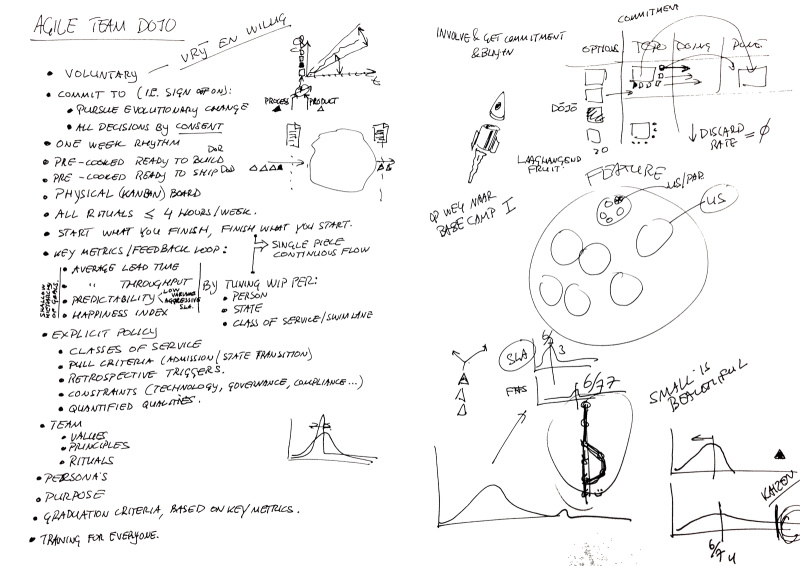 AGILE TEAM DOJO
VRIJ EN WILLIG
• VOLUNTARY
• COMMIT TO (I.E. SIGN OFF ON):
• PURSUE EVOLUTIONARY CHANGE
• ALL DECISIONS BY CONSENT
• ONE WEEK RHYTHM
• PRE-COOKED READY TO BUILD DoR
• PRE-COOKED READY TO SHIP DoD
• PHYSICAL (KANBAN) BOARD
• ALL RITUALS ≤ 4 HOURS/WEEK.
• START WHAT YOU FINISH, FINISH WHAT YOU START.
• KEY METRICS/FEEDBACK LOOP:
SINGLE PIECE
CONTINUOUS FLOW
• AVERAGE LEAD TIME
• " THROUGHPUT
• PREDICTABILITY LOW VARIANCE AGGRESSIVE SLA.
• HAPPINESS INDEX
SHALLOW HIERARCHY OF GOALS
BY TUNING WIP PER:
• PERSON
• STATE
• CLASS OF SERVICE/SWIMLANE
• EXPLICIT POLICY
• CLASSES OF SERVICE
• PULL CRITERIA (ADMISSION/STATE TRANSITION)
• RETROSPECTIVE TRIGGERS.
• CONSTRAINTS (TECHNOLOGY, GOVERNANCE, COMPLIANCE...)
• QUANTIFIED QUALITIES.
• TEAM
• VALUES
• PRINCIPLES
• RITUALS
• PERSONA'S
• PURPOSE
• GRADUATION CRITERIA, BASED ON KEY METRICS.
• TRAINING FOR EVERYONE.
t
PROCESS
PRODUCT
INVOLVE & GET COMMITMENT
& BUY-IN
COMMITMENT
OPTIONS
TODO
DOING
DONE
DOJO
20
↓ DISCARD
RATE = Ø
LAAGHANGEND
FRUIT.
OP WEG NAAR
BASE CAMP I
FEATURE
US/PAR
US
SLA
6/7
3
FNS
6/77
SMALL IS
BEAUTIFUL
KAIZEN
6/74